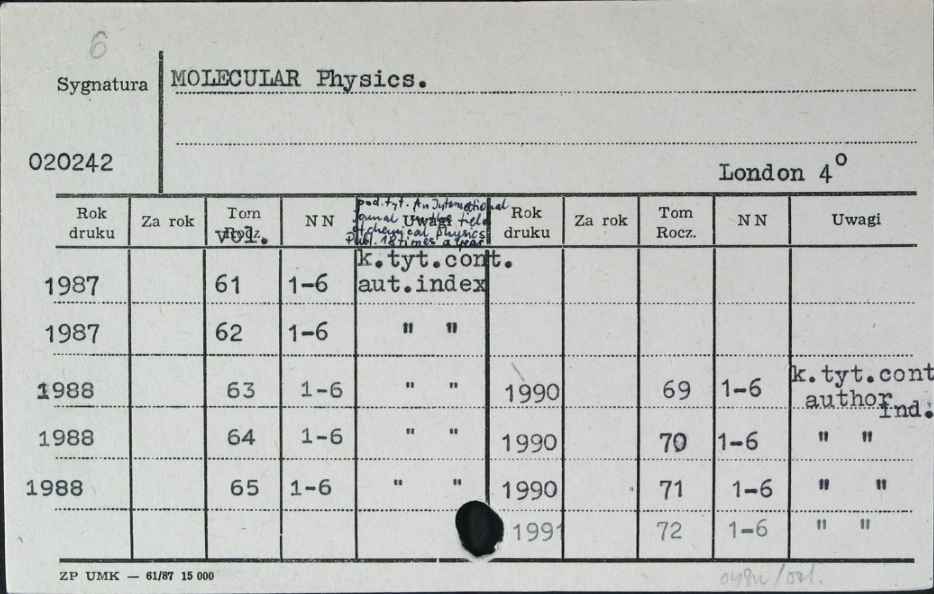 6
Sygnatura MOLECULAR Physics.
020242
London 4°
Rok druku Za rok Tom Rocz. vol. NN Uwagi Rok druku Za rok Tom Rocz. NN Uwagi
pod.tyt. An International
Journal in the field
of chemical Physics
Publ. 18 times a year
k.tyt.cont.
1987 61 1-6 aut.index
1987 62 1-6 " "
k.tyt.cont
1988 63 1-6 " " 1990 69 1-6 author
ind.
1988 64 1-6 " " 1990 70 1-6 " "
1988 65 1-6 " " 1990 71 1-6 " "
1991 72 1-6 " "
ZP UMK — 61/87 15 000